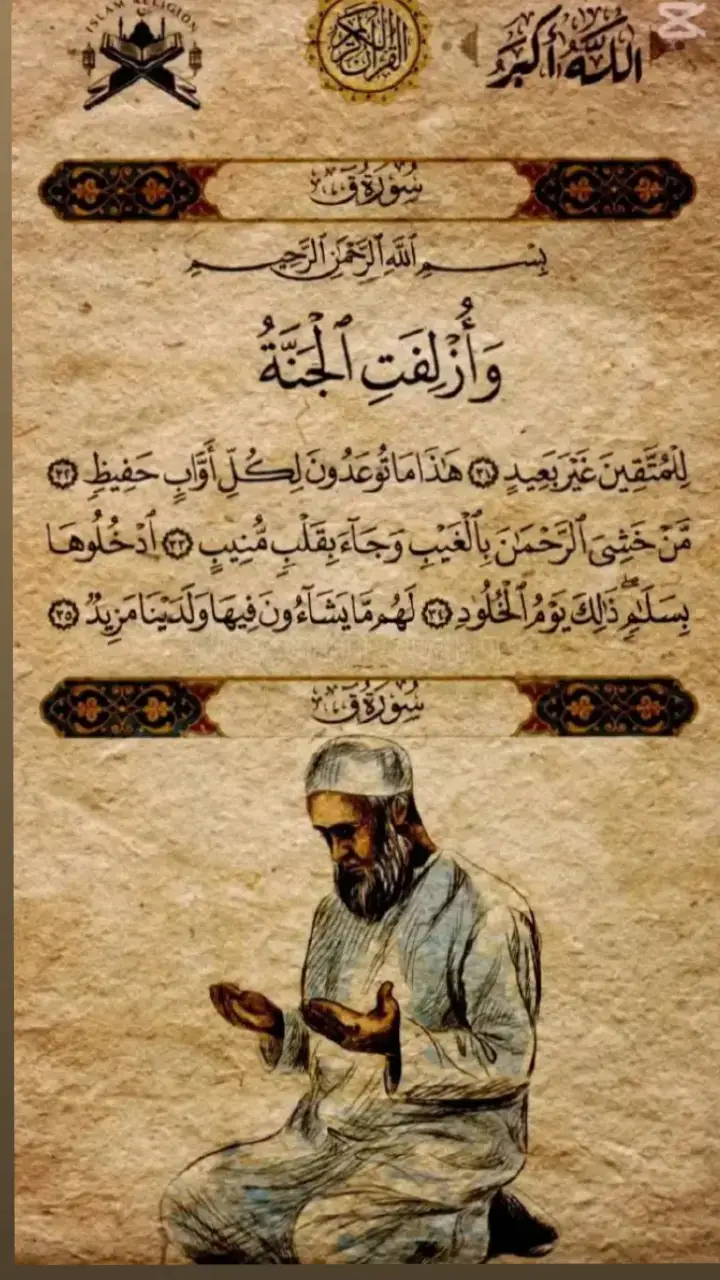 ISLAM RELIGION
القرآن الكريم
اللَّهُ أَكْبَرُ
سُورَةُ ق
بِسْمِ ٱللَّهِ ٱلرَّحْمَٰنِ ٱلرَّحِيمِ
وَأُزْلِفَتِ ٱلْجَنَّةُ
لِلْمُتَّقِينَ غَيْرَ بَعِيدٍ ٣١ هَٰذَا مَا تُوعَدُونَ لِكُلِّ أَوَّابٍ حَفِيظٍ ٣٢
مَّنْ خَشِىَ ٱلرَّحْمَٰنَ بِٱلْغَيْبِ وَجَآءَ بِقَلْبٍ مُّنِيبٍ ٣٣ ٱدْخُلُوهَا
بِسَلَٰمٍ ۖ ذَٰلِكَ يَوْمُ ٱلْخُلُودِ ٣٤ لَهُم مَّا يَشَآءُونَ فِيهَا وَلَدَيْنَا مَزِيدٌ ٣٥
سُورَةُ ق